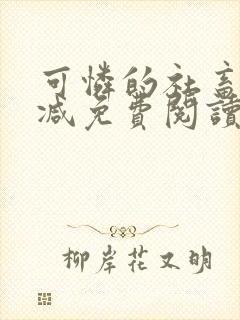 可憐的社畜
減免費閱讀
柳岸花又明